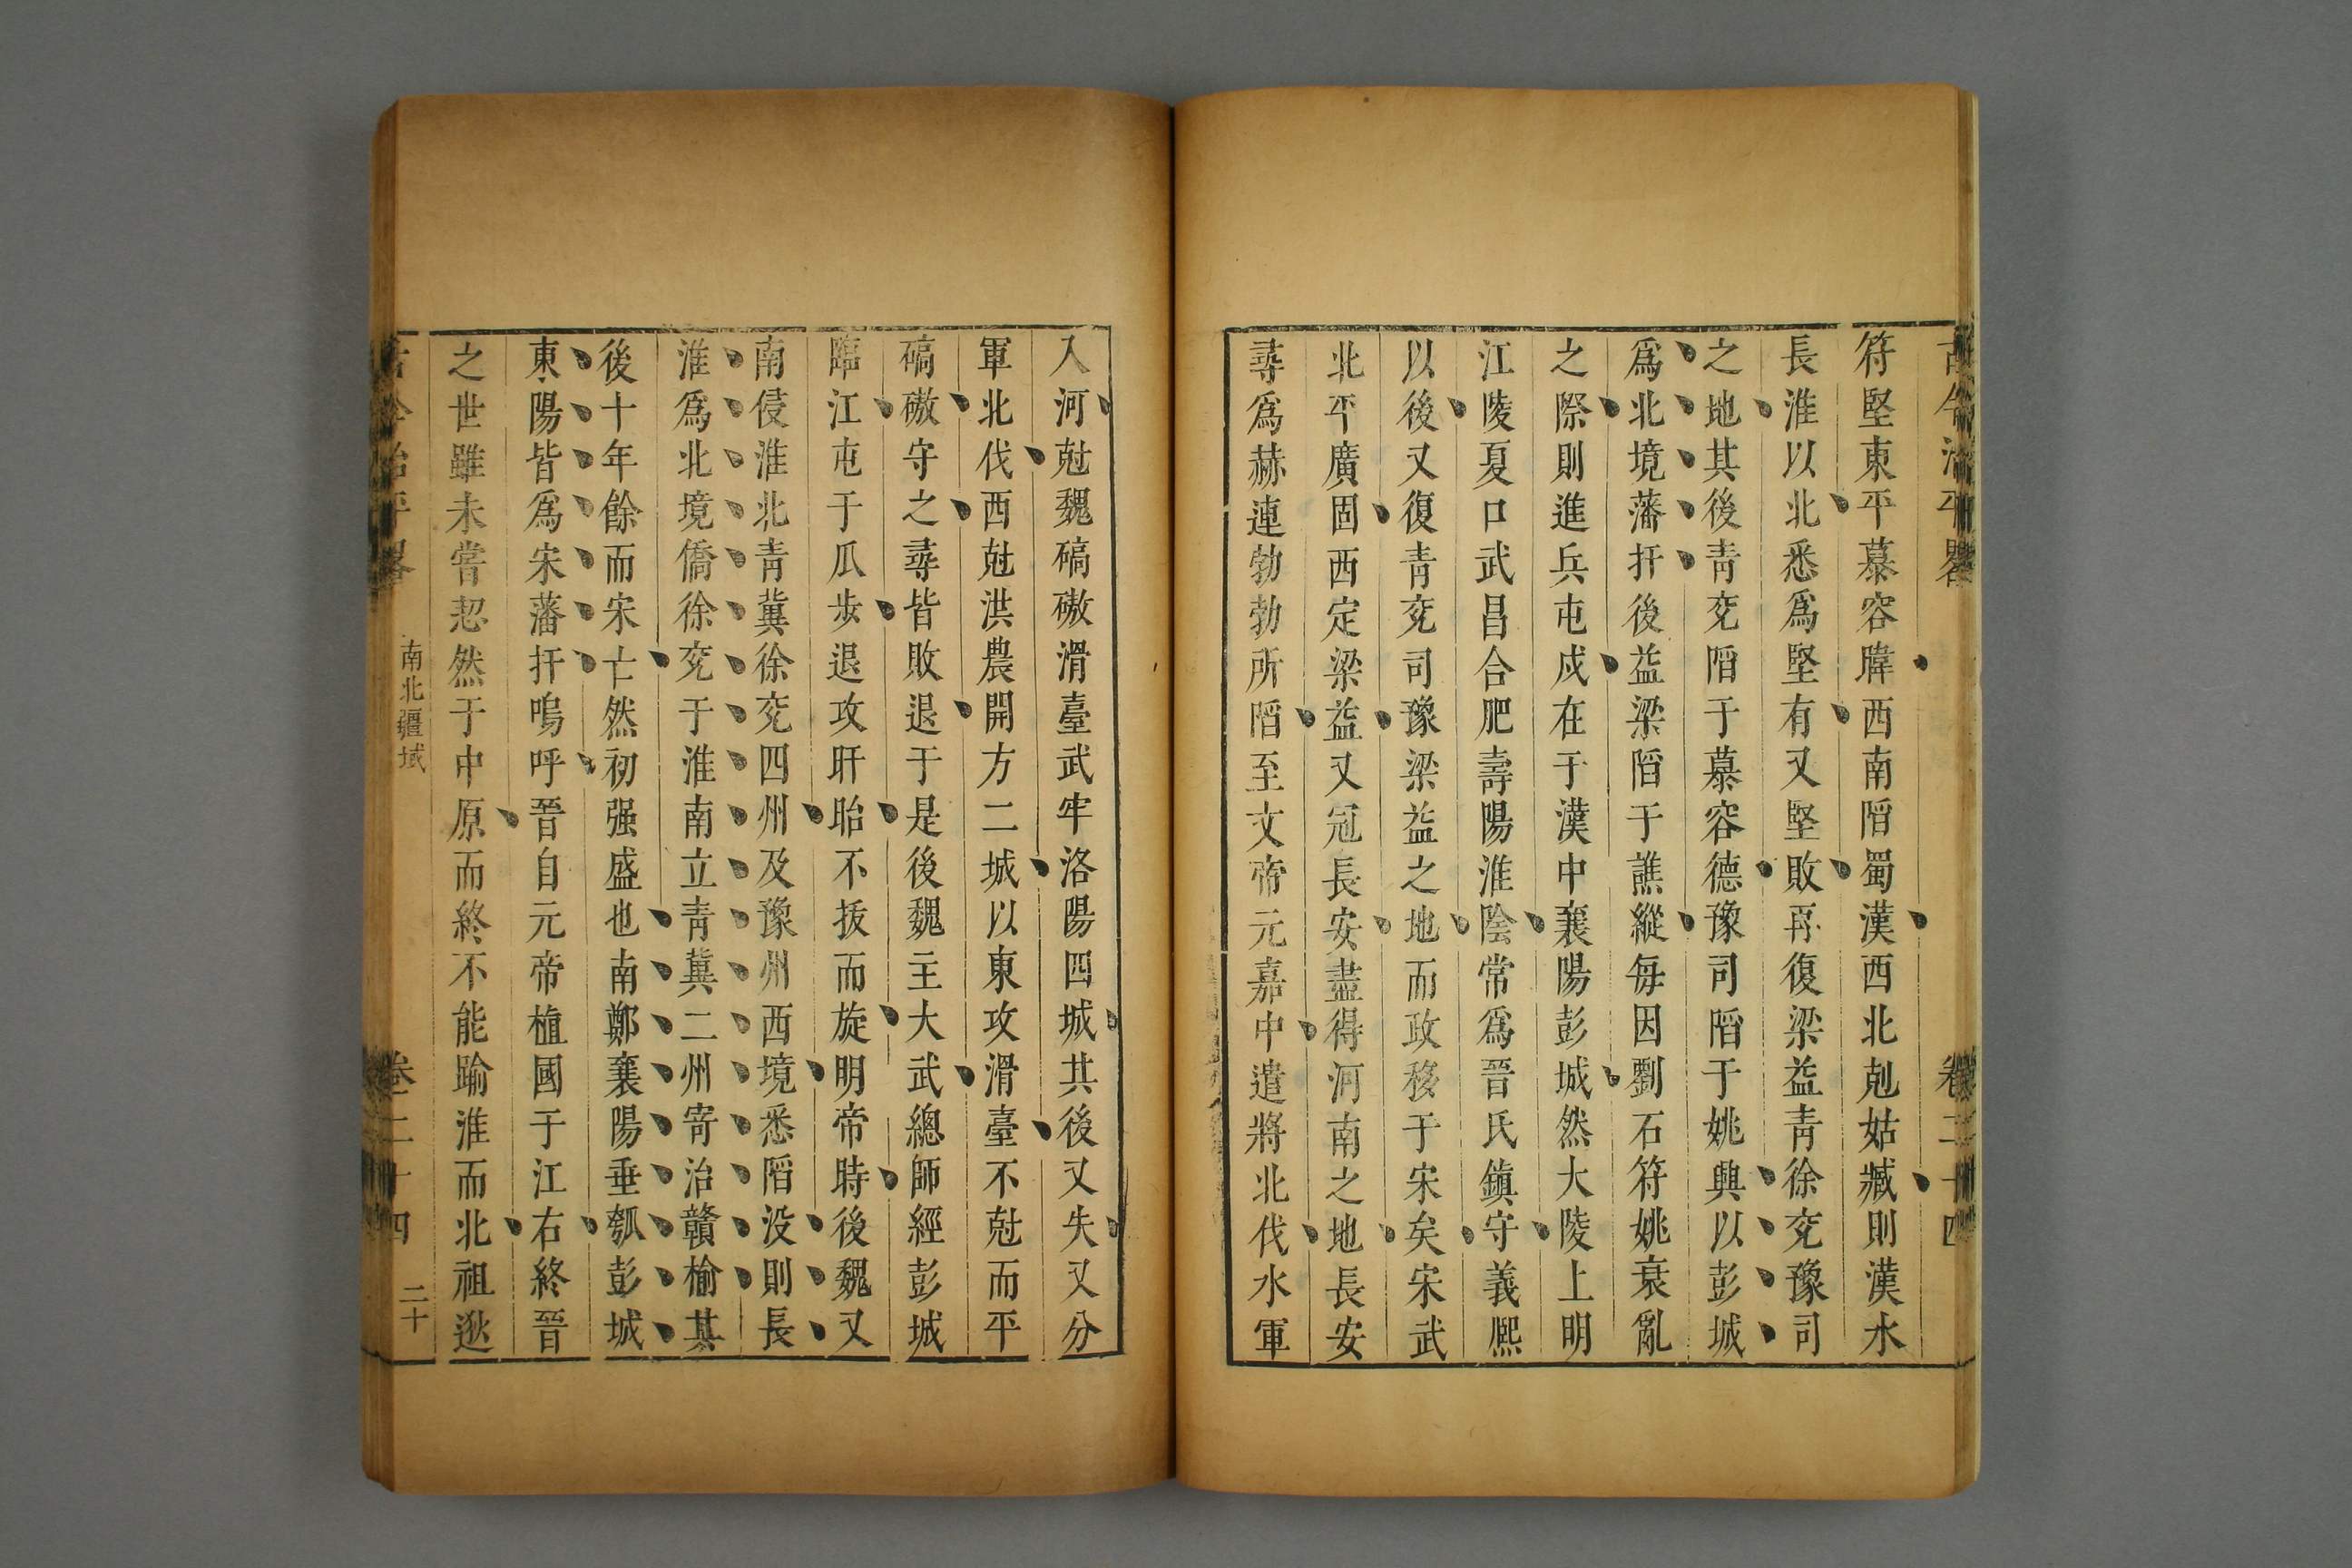 古今治平畧
卷二十四
符堅東平慕容暐西南䧟蜀漢西北剋姑臧則漢水
長淮以北悉爲堅有又堅敗再復梁益青徐兖豫司
之地其後青兖䧟于慕容德豫司䧟于姚興以彭城
爲北境藩扞後益梁䧟于譙縱每因劉石符姚衰亂
之際則進兵屯戍在于漢中襄陽彭城然大陵上明
江陵夏口武昌合肥壽陽淮陰常爲晉氏鎮守義熈
以後又復青兖司豫梁益之地而政移于宋矣宋武
北平廣固西定梁益又冦長安盡得河南之地長安
尋爲赫連勃勃所䧟至文帝元嘉中遣將北伐水軍
入河尅魏碻磝滑臺武牢洛陽四城其後又失又分
軍北伐西尅洪農開方二城以東攻滑臺不尅而平
碻磝守之尋皆敗退于是後魏主大武總師經彭城
臨江屯于瓜步退攻盱眙不拔而旋明帝時後魏又
南侵淮北青冀徐兖四州及豫州西境悉䧟没則長
淮爲北境僑徐兖于淮南立青冀二州寄治贛榆其
後十年餘而宋亡然初强盛也南鄭襄陽垂瓠彭城
東陽皆爲宋藩扞嗚呼晉自元帝植國于江右終晉
之世雖未嘗恝然于中原而終不能踰淮而北祖逖
南北疆域
卷二十四
二十